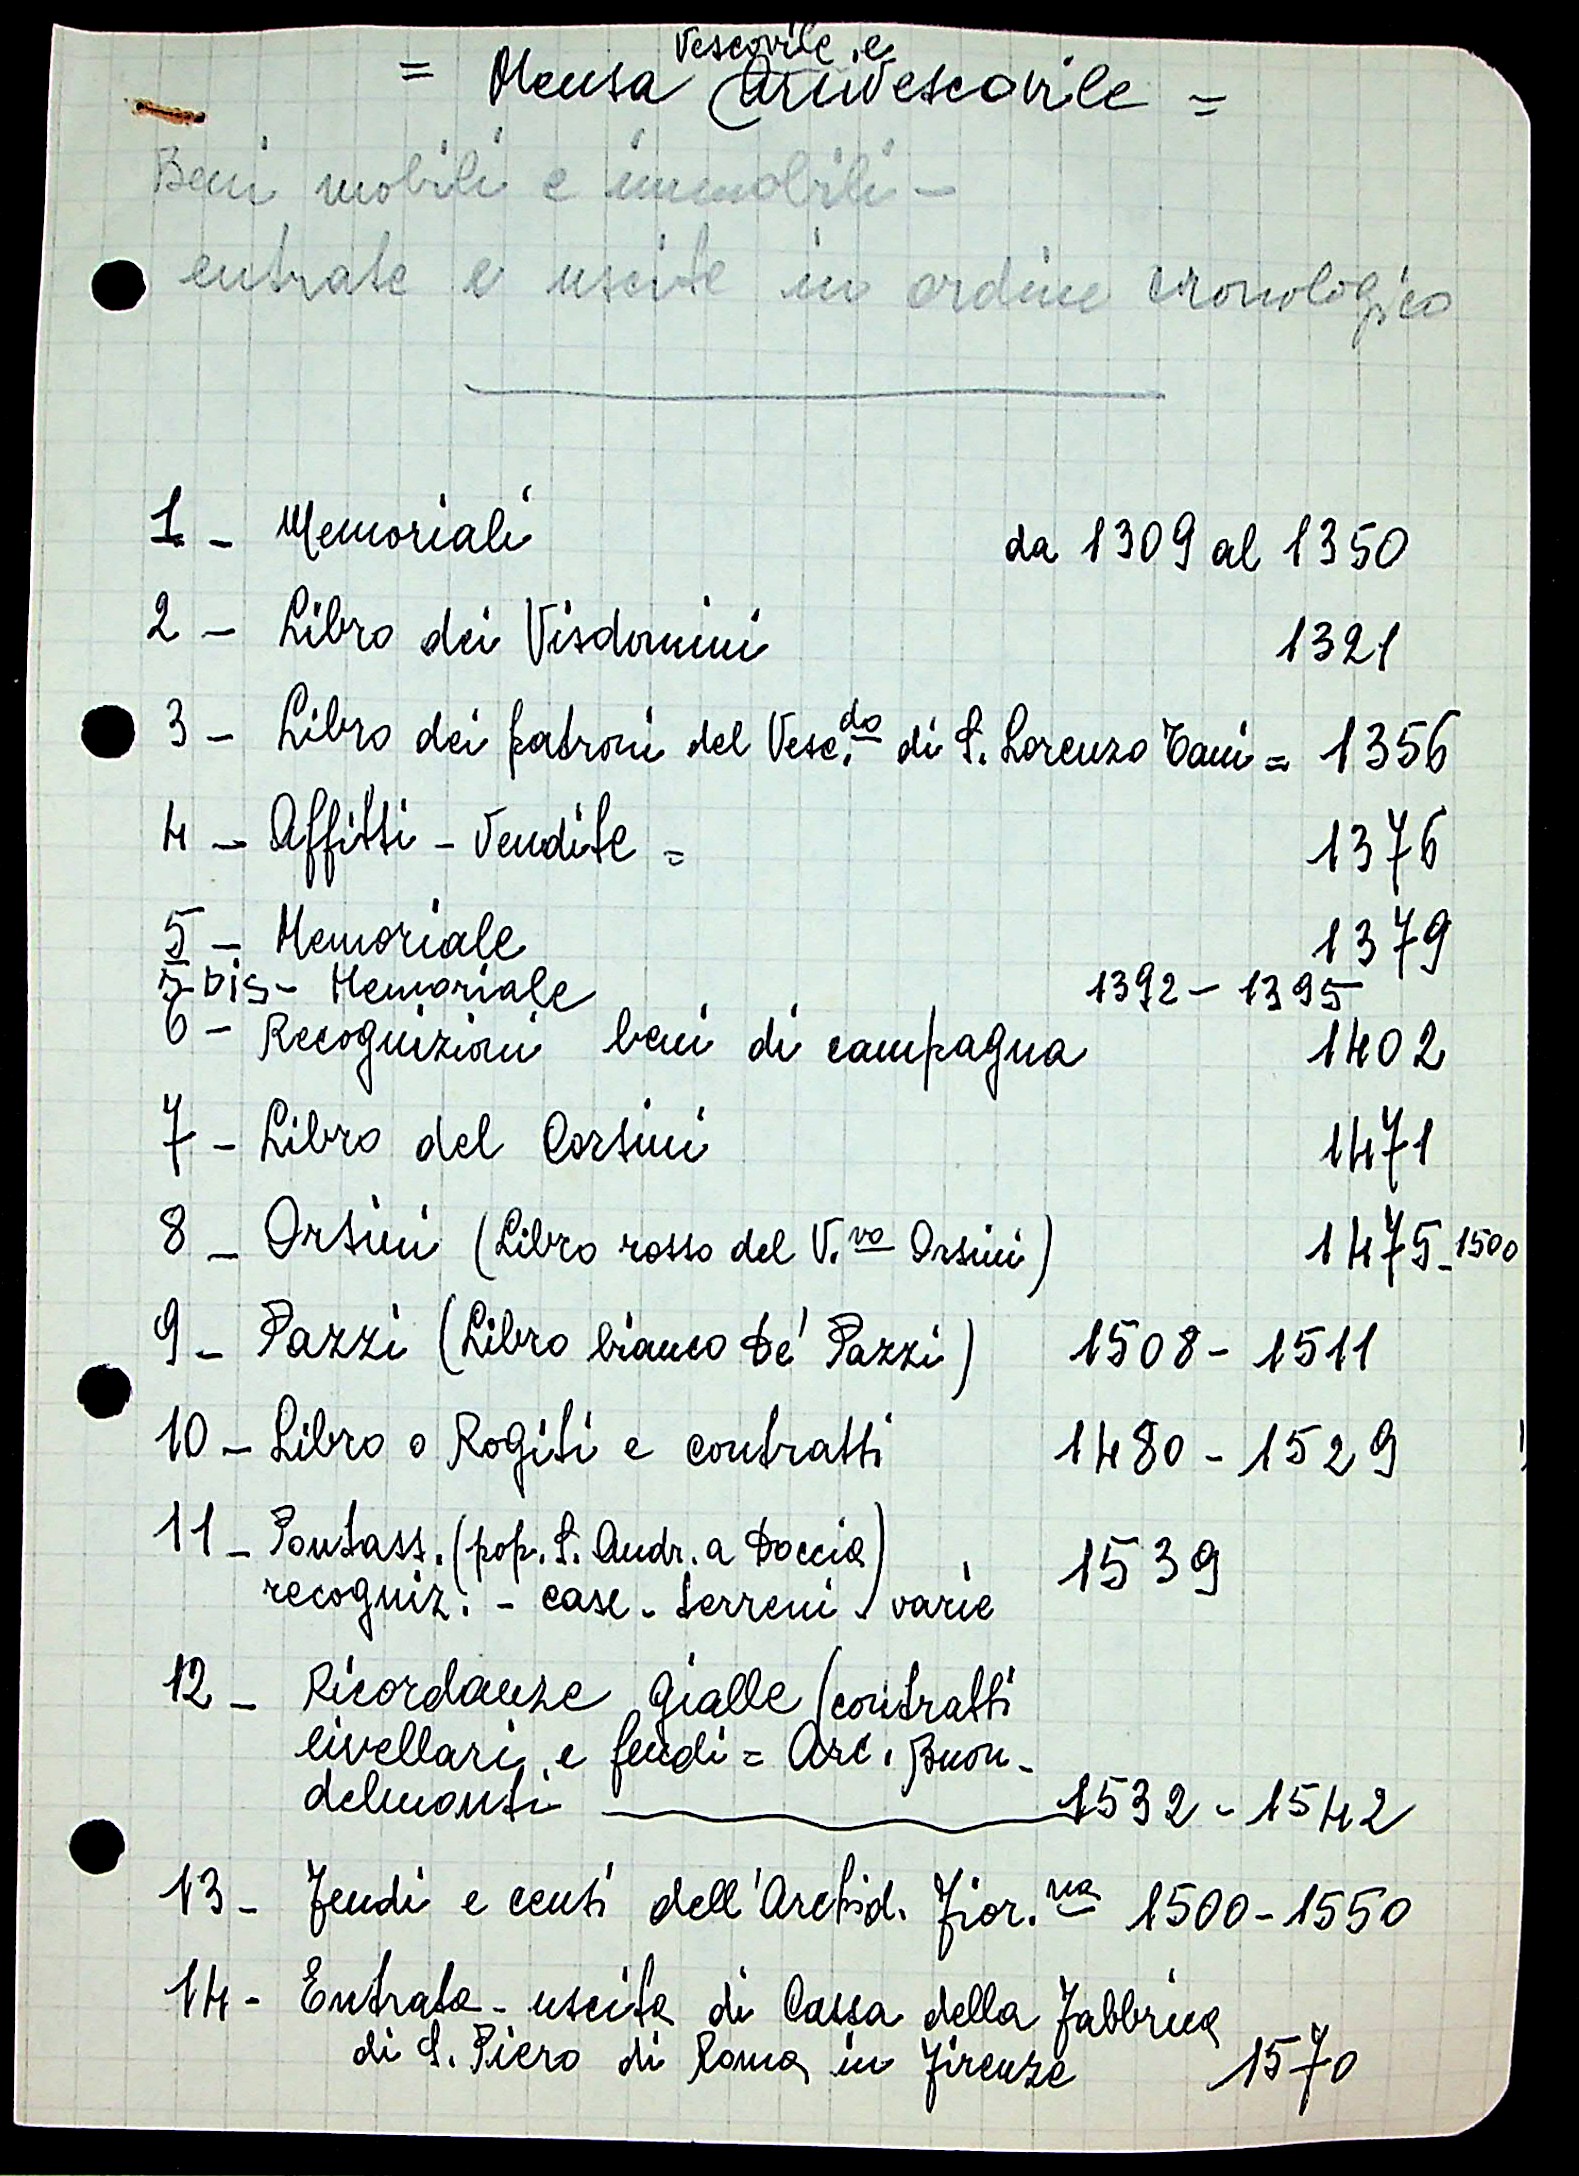 Vescovile e
= Mensa Arcivescovile =
Beni mobili e immobili -
entrate e uscite in ordine cronologico
1 - Memoriali da 1309 al 1350
2 - Libro dei Visdomini 1321
3 - Libro dei patroni del Vesc.do di S. Lorenzo = 1356
4 - Affitti - Vendite = 1376
5 - Memoriale 1379
5 bis - Memoriale 1392 - 1395
6 - Recognizioni beni di campagna 1402
7 - Libro del Corsini 1471
8 - Orsini (Libro rosso del V.vo Orsini) 1475 - 1500
9 - Pazzi (Libro bianco De' Pazzi) 1508 - 1511
10 - Libro o Rogiti e contratti 1480 - 1529
11 - Pontass. (pop. S. Andr. a Doccia)
recogniz: - case - terreni varie 1539
12 - Ricordanze gialle (contratti
livellari e feudi = Arc. Buon-
delmonti 1532 - 1542
13 - Feudi e censi dell'Archid. Fior.na 1500 - 1550
14 - Entrata - uscita di Cassa della Fabbrica
di S. Piero di Roma in Firenze 1570